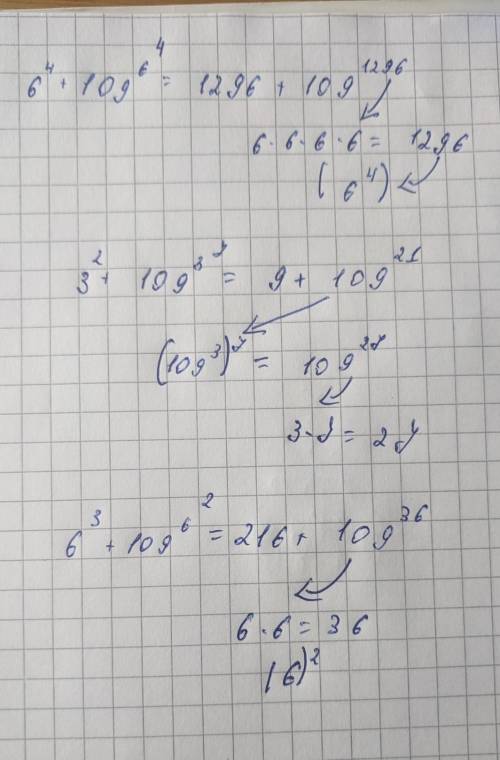 6⁴ + 109^6^4 = 1296 + 109^1296
6 · 6 · 6 · 6 = 1296
(6⁴)
3² + 109^3^7 = 9 + 109^21
(109³)⁷ = 109^21
3 · 7 = 21
6³ + 109^6^2 = 216 + 109^36
6 · 6 = 36
(6)²